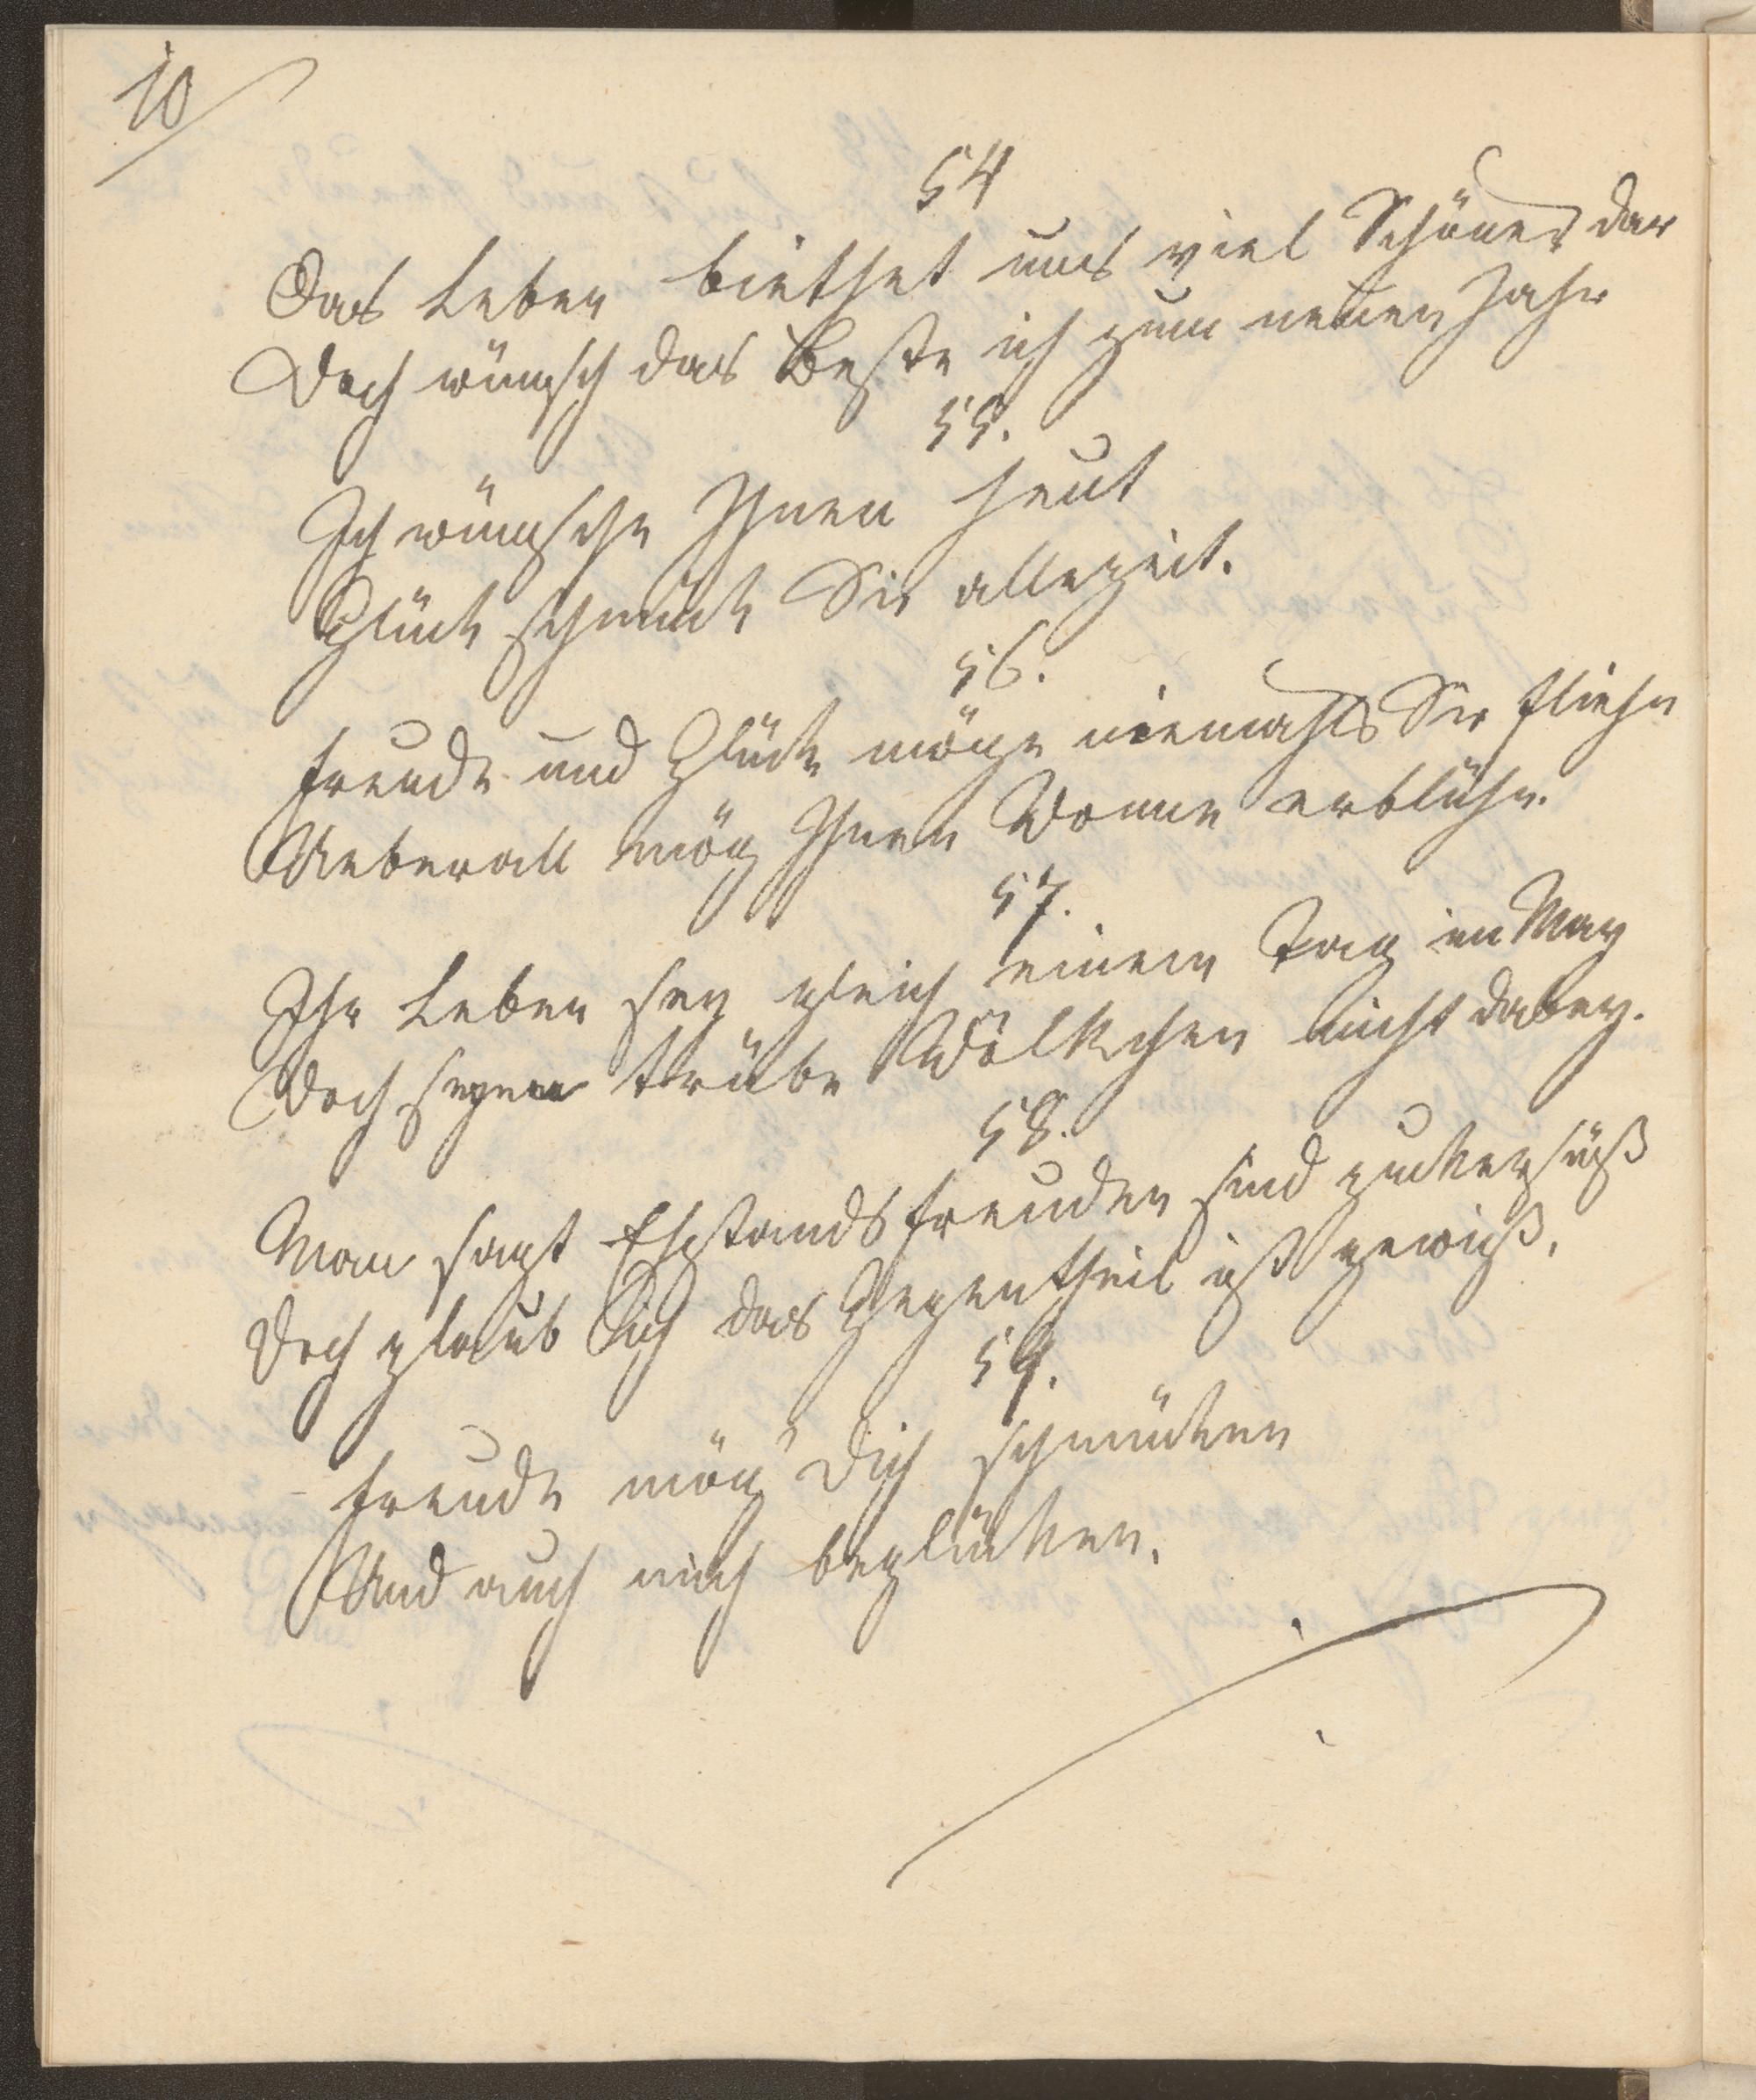 10
54
Das Leben biethet uns viel Schönes dar
Doch wünsch das Beste ich zum neuen Jahr
55.
Ich wünsche Ihnen heut
Glück schmück Sie allezeit.
56.
Freude und Glück möge niemahls Sie fliehn
Ueberall mög Ihnen Wonne erblühn.
57.
Ihr Leben sey gleich einem Tag im May
Doch seyen trübe Wölkchen nicht dabey.
58.
Man sagt Ehstandsfreuden sind zuckersüß
Doch glaub ich das Gegentheil ist gewiß.
59.
Freude mög' Dich schmücken
Und auch mich beglücken.